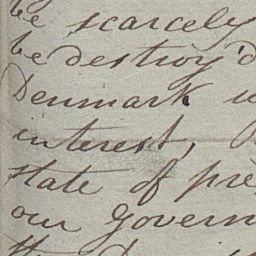 be scarcely
be destroy'd
Denmark
interest,
state of pre
our Govern
the